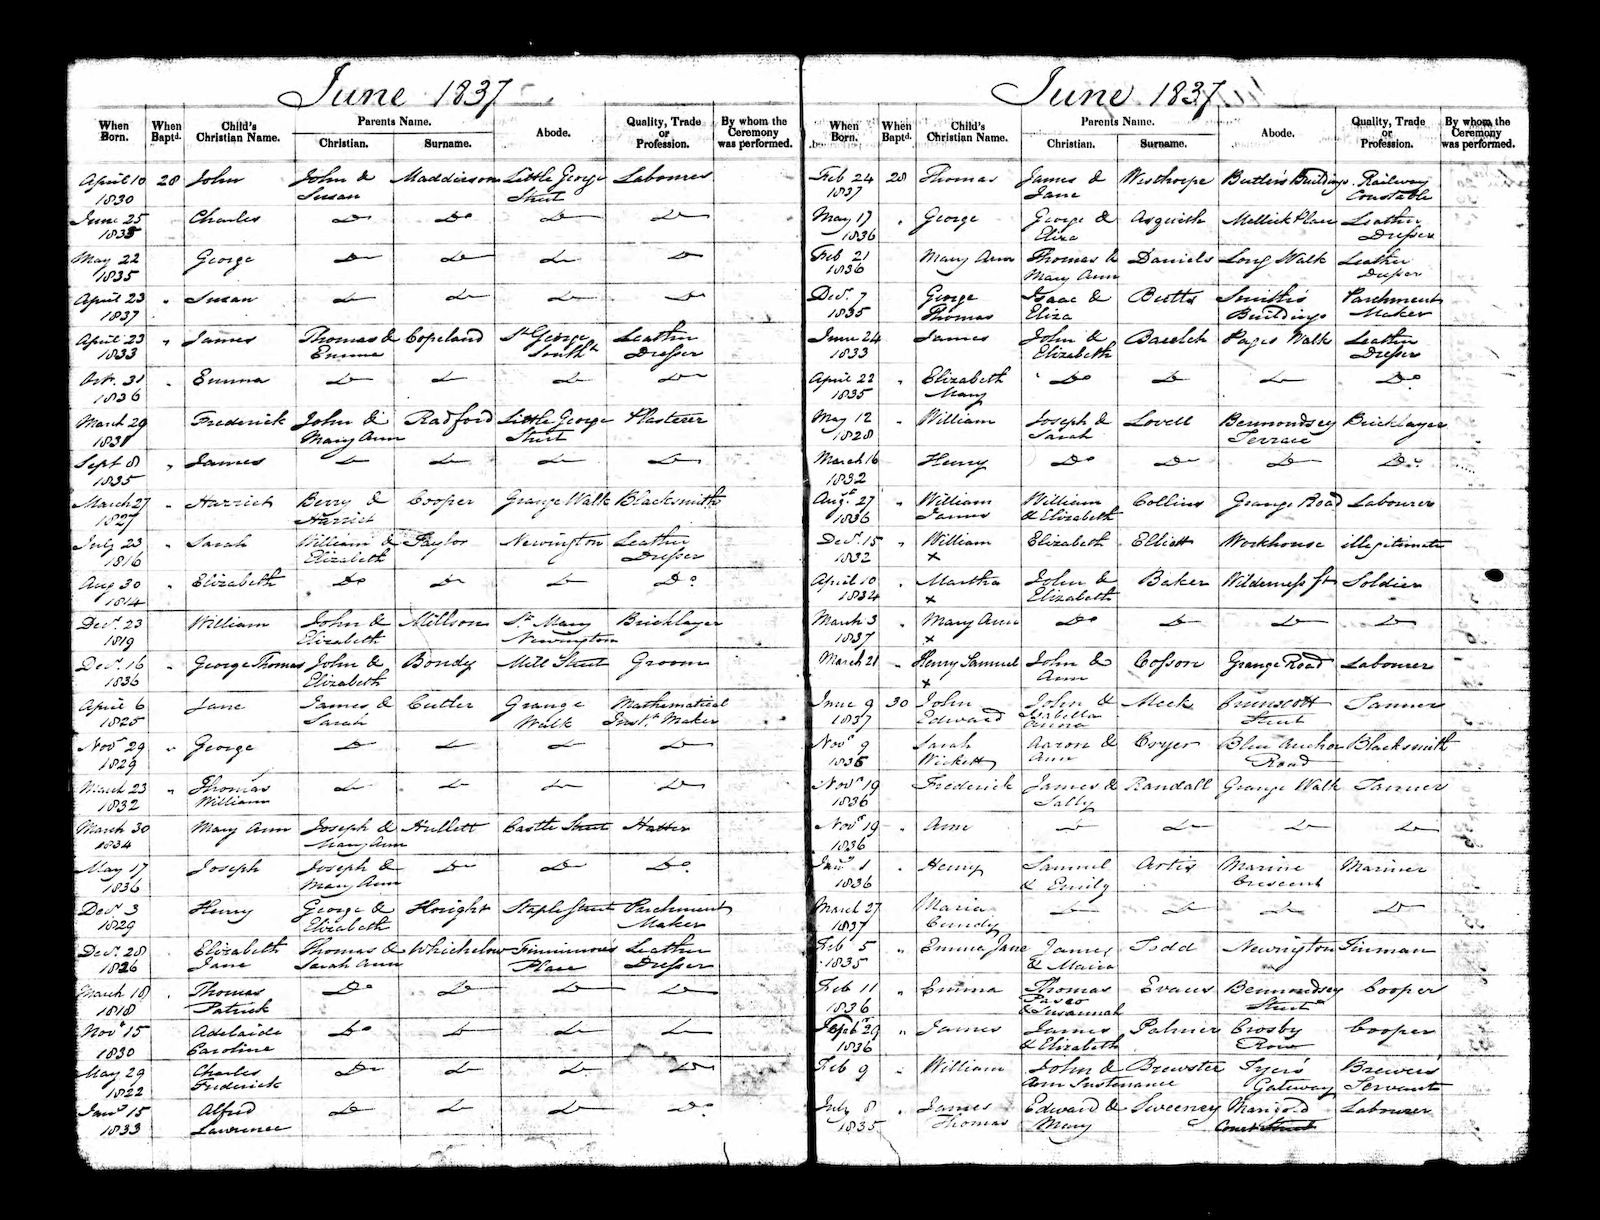 June 1837
When Born. When Baptd. Child's Christian Name. Parents Name. Christian. Surname. Abode. Quality, Trade or Profession. By whom the Ceremony was performed.
April 10 28 John John & Maddieson Little George Labourer
1830 Susan Street
June 25 Charles Do Do Do Do
1835
May 22 George Do Do Do Do
1835
April 23 " Susan Do Do Do Do
1837
April 23 " James Thomas & Copeland St George Leather
1833 Emma Dresser
Oct. 31 " Emma Do Do Do Do
1836
March 29 Frederick John & Radford Little George Plasterer
Mary Ann Street
Sept 8 " James Do Do Do Do
1835
March 27 " Harriet Berry & Cooper Grange Walk Blacksmith
1827 Harriet
July 23 " Sarah William & Taylor Newington Leather
1816 Elizabeth Dresser
Aug 30 " Elizabeth Do Do Do Do
1814
Decr. 23 William John & Millson St. Mary Bricklayer
1819 Elizabeth Newington
Decr. 16 " George Thomas John & Bondy Mill Street Groom
1836 Elizabeth
April 6 Jane James & Cutler Grange Mathematical
1825 Sarah Walk Inst. Maker
Novr 29 " George Do Do Do Do
1829
March 23 " Thomas Do Do Do Do
1832 William
March 30 Mary Ann Joseph & Hullett Castle Street Hatter
1834 Mary Ann
May 17 Joseph Joseph & Do Do Do
1836 Mary Ann
Decr 3 Henry George & Hought Staple Street Parchment
1829 Elizabeth Maker
Decr. 28 Elizabeth Thomas & Whichelow Leather
1826 Jane Sarah Ann Place Dresser
March 18 " Thomas Do Do Do Do
1818 Patrick
Novr 15 Adelaide Do Do Do Do
1830 Caroline
May 29 Charles Do Do Do Do
1822 Frederick
Jany 15 Alfred Do Do Do Do
1833 Lawrence
June 1837
When Born. When Baptd. Child's Christian Name. Parents Name. Christian. Surname. Abode. Quality, Trade or Profession. By whom the Ceremony was performed.
Feb 24 28 Thomas James & Westhorpe Butler's Buildings Railway
1837 Jane Constable
May 17 " George George & Asquith Mellick Place Leather
1836 Eliza Dresser
Feb 21 Mary Ann Thomas & Daniels Long Walk Leather
1836 Mary Ann Dresser
Decr. 7 George Isaac & Butts Smith's Parchment
1835 Thomas Eliza Buildings Maker
June 24 James John & Pages Walk Leather
1833 Elizabeth Dresser
April 22 " Elizabeth Do Do Do Do
1835 Mary
May 12 " William Joseph & Lovell Bermondsey Bricklayer
1828 Sarah Terrace
March 16 Henry Do Do Do Do
1832
Augt. 27 " William William Collins Grange Road Labourer
1836 James & Elizabeth
Decr. 15 " William Elizabeth Elliott Workhouse illegitimate
1832 x
April 10 " Martha John & Baker Wilderness St Soldier
1834 x Elizabeth
March 3 " Mary Ann Do Do Do Do
1837 x
March 21 " Henry Samuel John & Cosson Grange Road Labourer
x Ann
June 9 30 John John & Meek Crimscott Tanner
1837 Edward Isabella Street
Novr 9 " Sarah Aaron & Cryer Blue Anchor Blacksmith
1836 Wickett Ann Road
Novr 19 " Frederick James & Randall Grange Walk Tanner
1836 Sally
Novr 19 " Anne Do Do Do Do
1836
Jany 1 " Henry Samuel Artis Marine Mariner
1836 & Emily Crescent
March 27 Maria Do Do Do Do
1837 Cundy
Feb 5 " Emma Jane James Todd Newington Tinman
1835 & Maria
Feb 11 " Emma Thomas Evans Bermondsey Cooper
1836 Pasco Street
& Susannah
Septr 29 " James James Palmer Crosby Cooper
1836 & Elizabeth Row
Feb 9 " William John & Brewster Tyers Brewers
Ann Sustenance Gateway Servant
July 8 " James Edward & Sweeney Marigold Labourer
1835 Thomas Mary Court